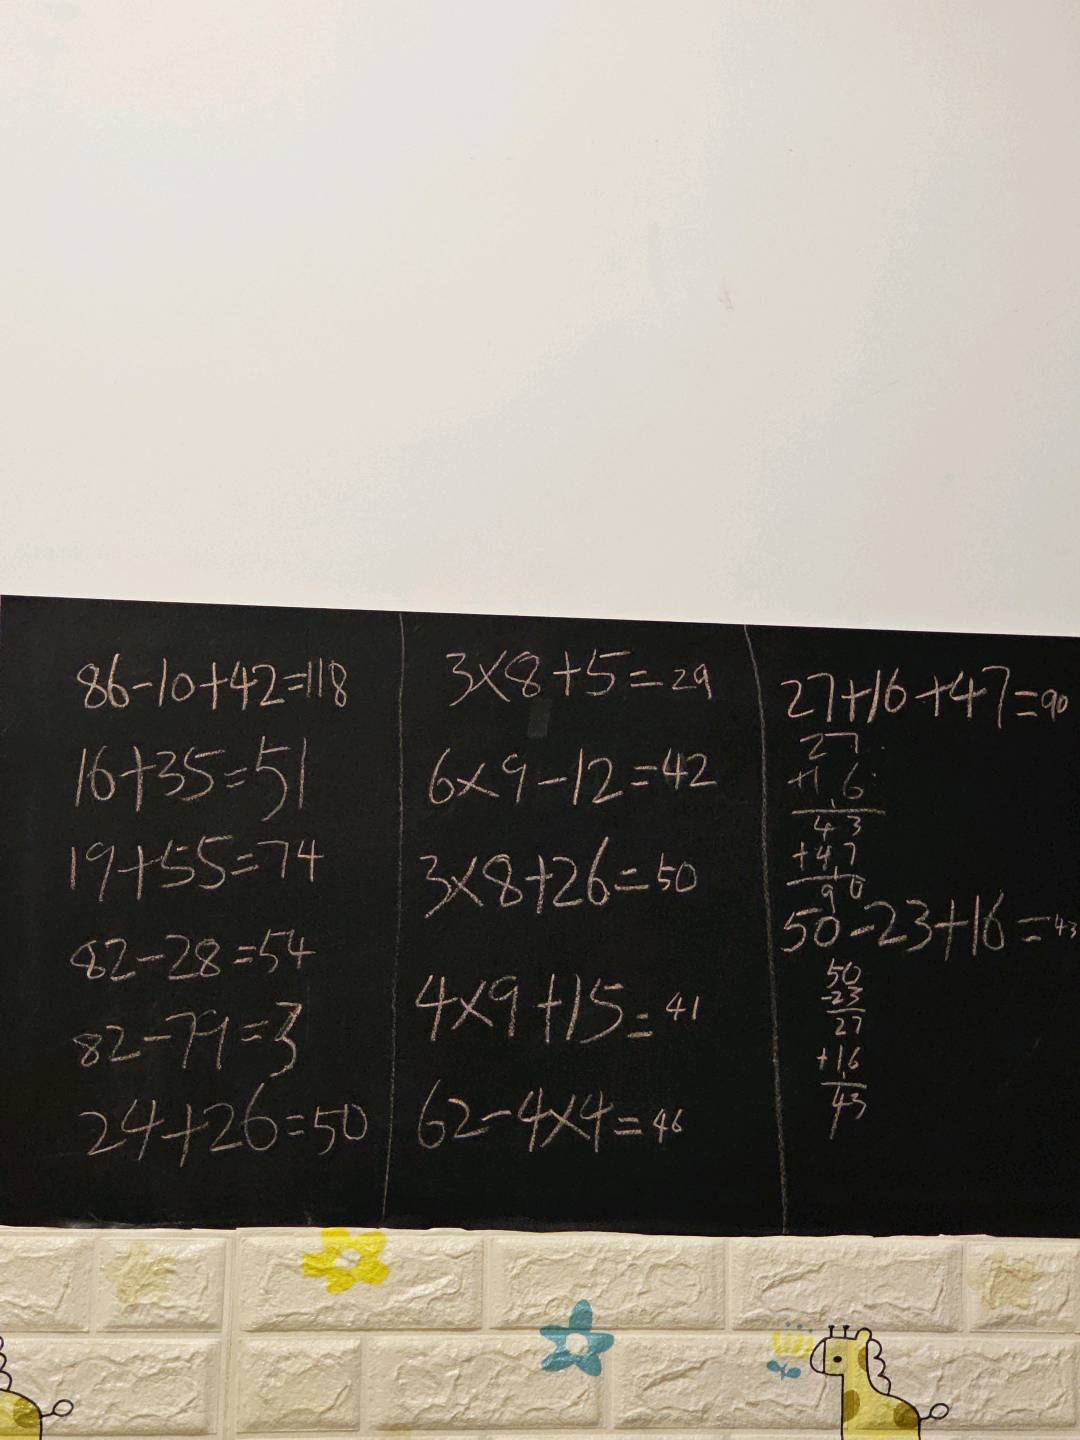 86-10+42=118
16+35=51
19+55=74
82-28=54
82-79=3
24+26=50
3×8+5=29
6×9-12=42
3×8+26=50
4×9+15=41
62-4×4=46
27+16+47=90
27
+16
43
+47
90
50-23+16=43
50
-23
27
+16
43